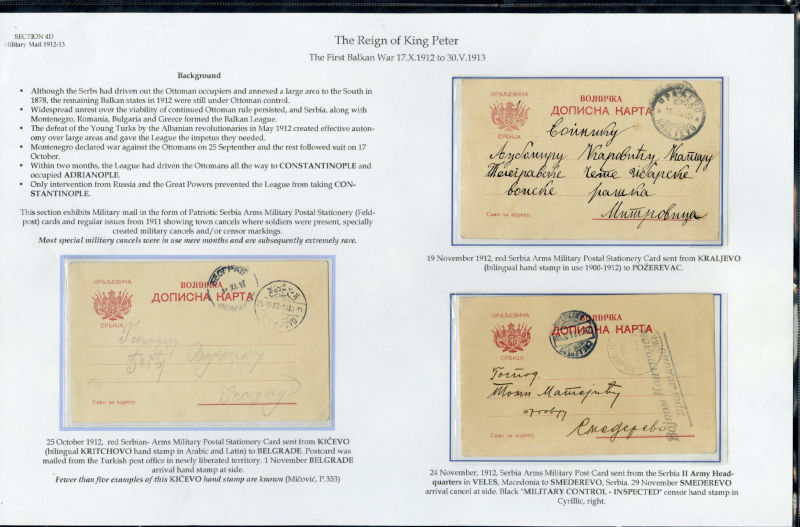 SECTION 4D
Military Mail 1912-13
The Reign of King Peter
The First Balkan War 17.X.1912 to 30.V.1913
Background
• Although the Serbs had driven out the Ottoman occupiers and annexed a large area to the South in
1878, the remaining Balkan states in 1912 were still under Ottoman control.
• Widespread unrest over the viability of continued Ottoman rule persisted, and Serbia, along with
Montenegro, Romania, Bulgaria and Greece formed the Balkan League.
• The defeat of the Young Turks by the Albanian revolutionaries in May 1912 created effective auton-
omy over large areas and gave the League the impetus they needed.
• Montenegro declared war against the Ottomans on 25 September and the rest followed suit on 17
October.
• Within two months, the League had driven the Ottomans all the way to CONSTANTINOPLE and
occupied ADRIANOPLE.
• Only intervention from Russia and the Great Powers prevented the League from taking CON-
STANTINOPLE.
This section exhibits Military mail in the form of Patriotic Serbia Arms Military Postal Stationery (Feld-
post) cards and regular issues from 1911 showing town cancels where soldiers were present, specially
created military cancels and/or censor markings.
Most special military cancels were in use mere months and are subsequently extremely rare.
КРАЉЕВИНА
СРБИЈА
ВОЈНИЧКА
ДОПИСНА КАРТА
БЕОГРАД
Само за адресу.
25 October 1912, red Serbian- Arms Military Postal Stationery Card sent from KIČEVO
(bilingual KRITCHOVO hand stamp in Arabic and Latin) to BELGRADE. Postcard was
mailed from the Turkish post office in newly liberated territory. 1 November BELGRADE
arrival hand stamp at side.
Fewer than five examples of this KIČEVO hand stamp are known (Mičović, P.353)
КРАЉЕВИНА
СРБИЈА
ВОЈНИЧКА
ДОПИСНА КАРТА
KRALJEVO
Војнику
чете
војске рашка
Митровица
Само за адресу.
19 November 1912, red Serbia Arms Military Postal Stationery Card sent from KRALJEVO
(bilingual hand stamp in use 1900-1912) to POŽEREVAC.
КРАЉЕВИНА
СРБИЈА
ВОЈНИЧКА
ДОПИСНА КАРТА
Господ.
Смедерево
Само за адресу.
24 November, 1912, Serbia Arms Military Post Card sent from the Serbia II Army Head-
quarters in VELES, Macedonia to SMEDEREVO, Serbia. 29 November SMEDEREVO
arrival cancel at side. Black "MILITARY CONTROL - INSPECTED" censor hand stamp in
Cyrillic, right.